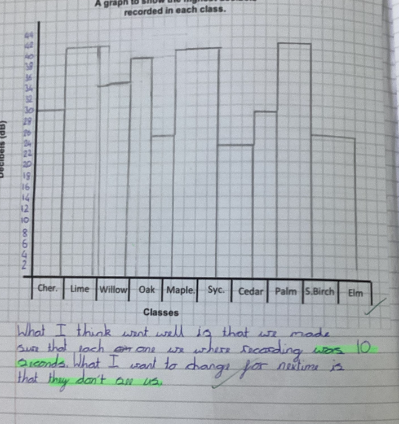 A graph to show the highest decibels
recorded in each class.
Decibels (dB)
44
42
40
38
36
34
32
30
28
26
24
22
20
18
16
14
12
10
8
6
4
2
Cher. Lime Willow Oak Maple. Syc. Cedar Palm S.Birch Elm
Classes
What I think went well is that we made
sure that each one we where recording was 10
seconds. What I want to change for nextime is
that they don't see us.